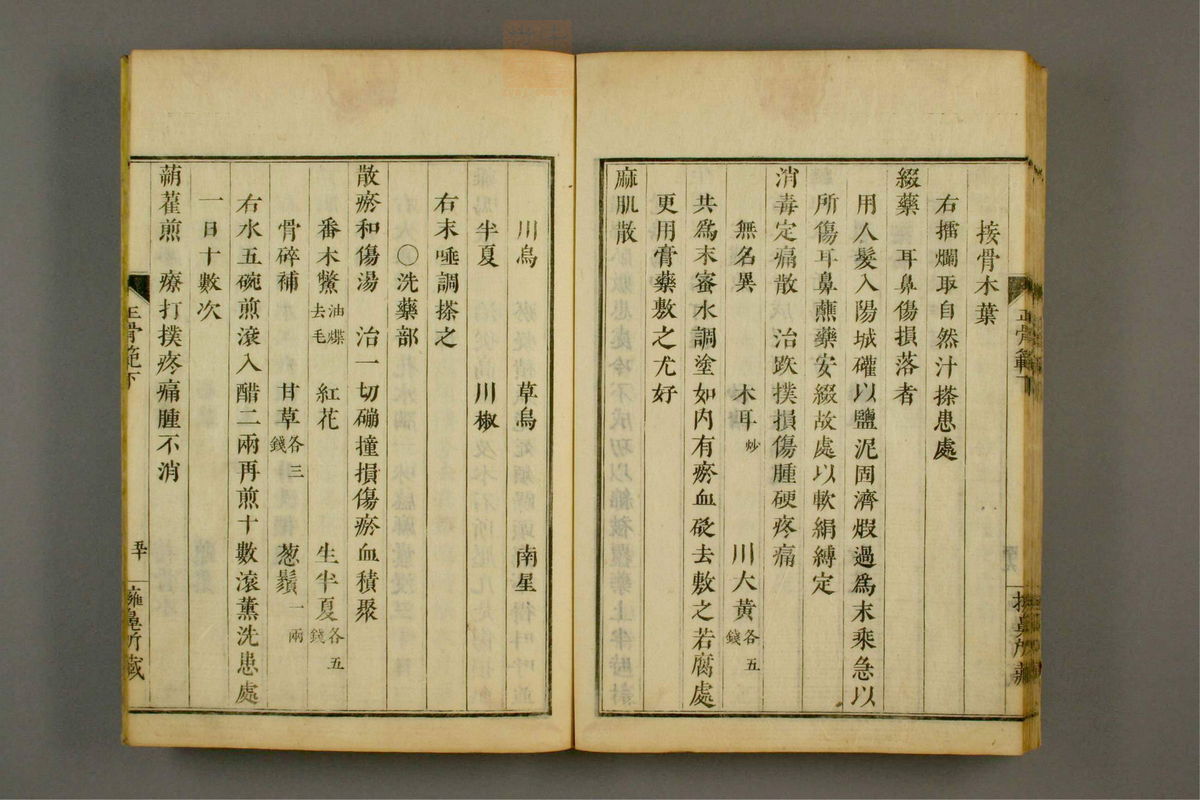 接骨木葉
右擂爛取自然汁搽患處
綴藥　耳鼻傷損落者
用人髮入陽城礶以鹽泥固濟煆過爲末乘急以
所傷耳鼻蘸藥安綴故處以軟絹縛定
消毒定痛散　治跌撲損傷腫硬疼痛
無名異　木耳炒　川大黃各五錢
共爲末蜜水調塗如內有瘀血砭去敷之若腐處
更用膏藥敷之尤好
麻肌散
正骨範下
川烏　草烏　南星
半夏　川椒
右末唾調搽之
〇洗藥部
散瘀和傷湯　治一切磞撞損傷瘀血積聚
番木鱉油煠去毛　紅花　生半夏各五錢
骨碎補　甘草各三錢　葱鬚一兩
右水五碗煎滾入醋二兩再煎十數滾薰洗患處
一日十數次
蒴藋煎　療打撲疼痛腫不消
正骨範下